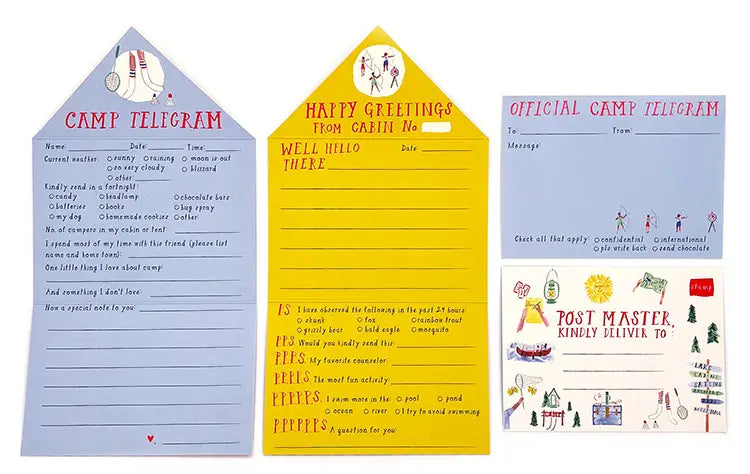 CAMP TELEGRAM
Name: Date: Time:
Current weather: sunny raining moon is out
so very cloudy blizzard
other
Kindly send in a fortnight:
candy headlamp chocolate bars
batteries books bug spray
my dog homemade cookies other:
No. of campers in my cabin or tent:
I spend most of my time with this friend (please list
name and home town):
One little thing I love about camp:
And something I don't love:
Now a special note to you:
HAPPY GREETINGS
FROM CABIN No.
WELL HELLO Date:
THERE
P.S. I have observed the following in the past 24 hours:
skunk fox rainbow trout
grizzly bear bald eagle mosquito
PPS Would you kindly send this:
PPPS. My favorite counselor:
PPPPS The most fun activity
PPPPPS. I swim more in the pool pond
ocean river I try to avoid swimming
PPPPPPS. A question for you:
OFFICIAL CAMP TELEGRAM
To: From:
Message:
Check all that apply: confidential international
pls. write back send chocolate
stamp
POST MASTER,
KINDLY DELIVER TO:
LAKE
CAMP